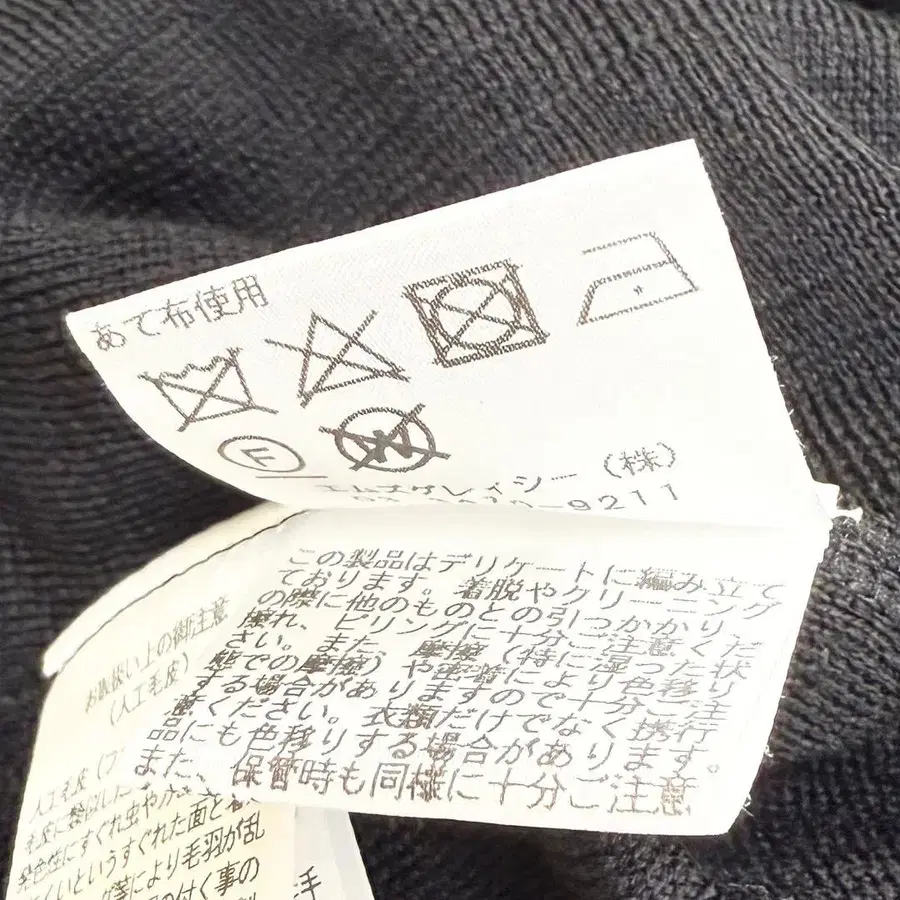 あて布使用
F
エムズグレイシー(株)
-9211
この製品はデリケートに編み立て
ております。着脱やクリーニング
の際に他のものとの引っかかり、
擦れ、ピリングに十分ご注意くだ
さい。また、摩擦(特に湿った状
態での摩擦)や密着により色移り
する場合がありますので十分ご注
意ください。衣類だけでなく携行
品にも色移りする場合があります。
また、保管時も同様に十分ご注意
お取扱い上の御注意
(人工毛皮)
人工毛皮(フ
毛皮に類似した
発色性にすぐれ虫や
くいというすぐれた面と
等により毛羽が乱
の付く事の
手